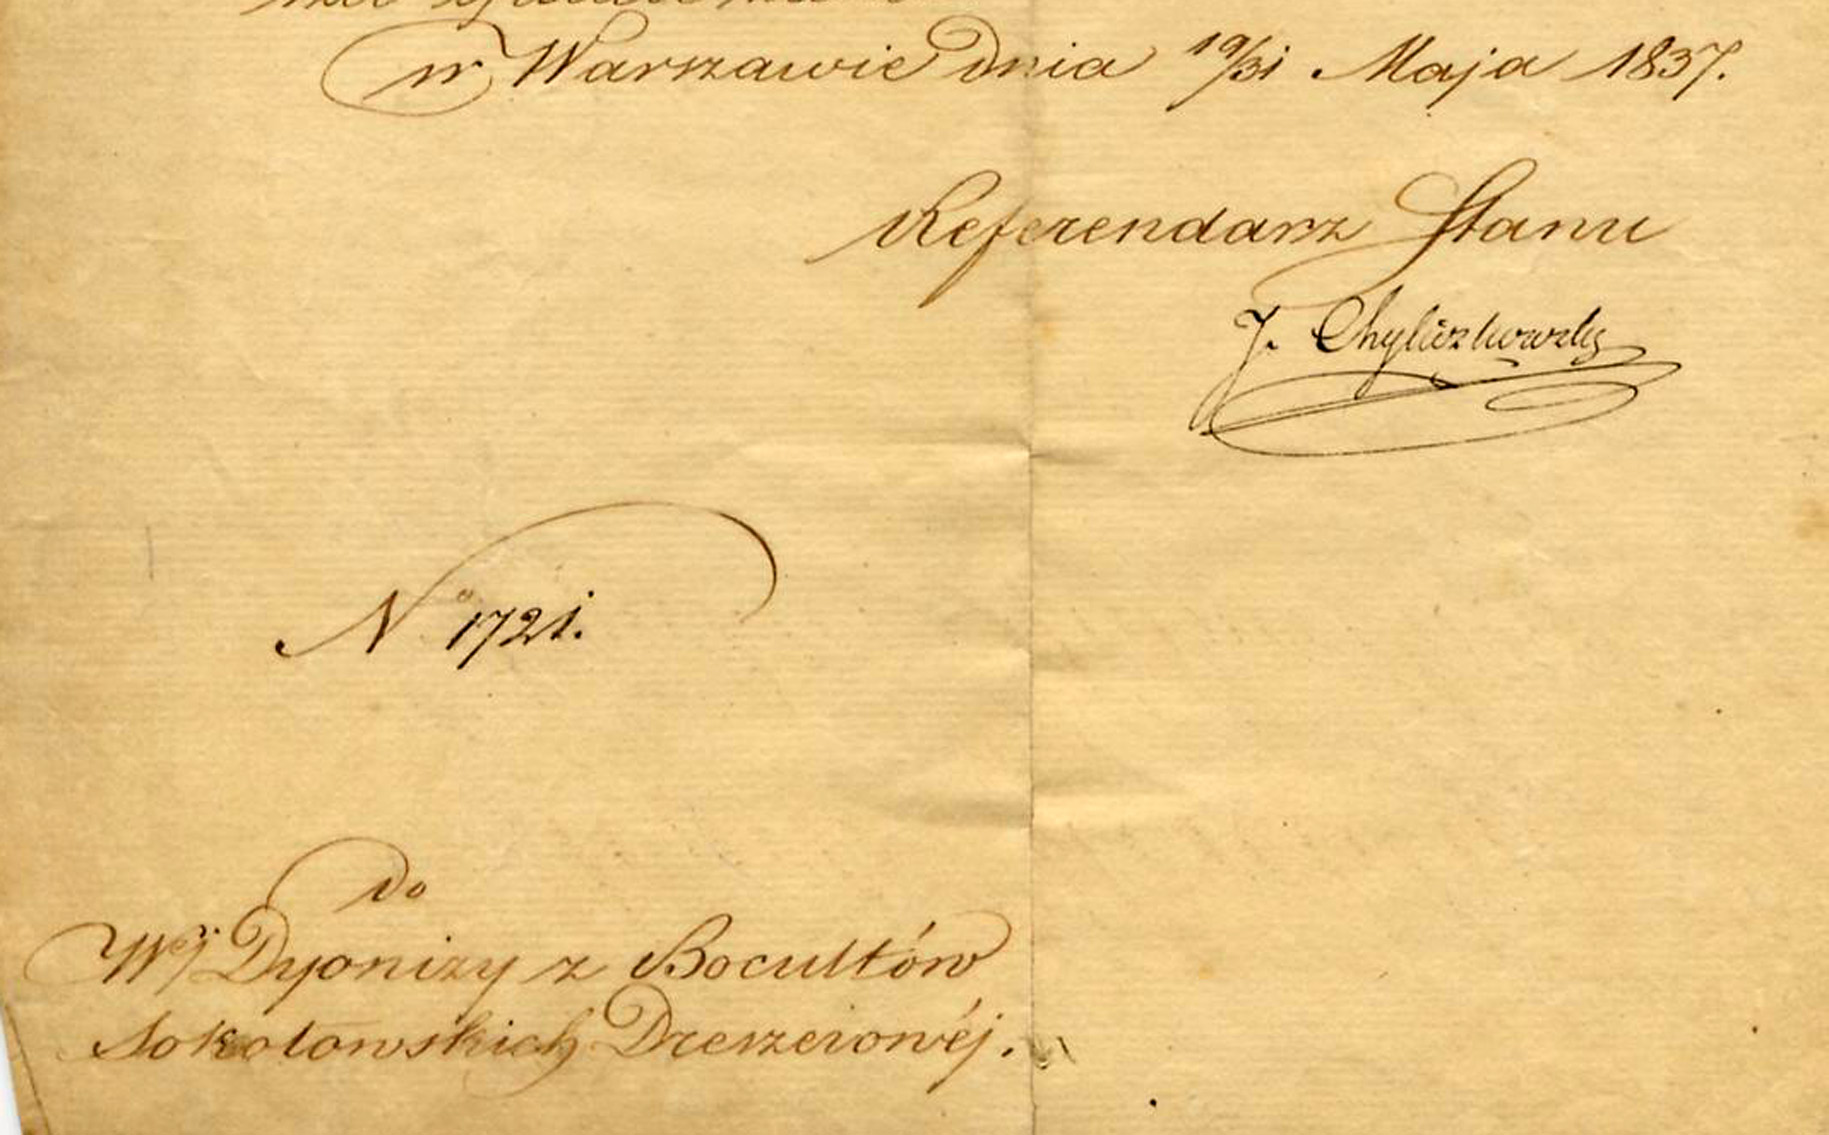 w Warszawie Dnia 19/31 Maja 1837.
Referendarz Stanu
J. Chyliczkowski
No 1721.
Do
WJ Dyonizy z Bocultów
Sokołowskich Dreszerowéj.